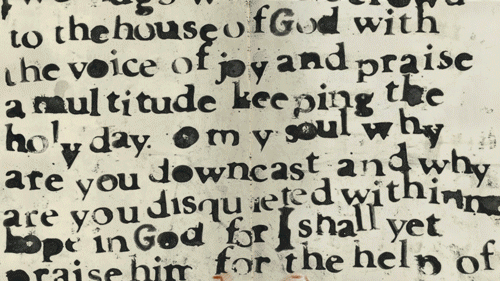 to the house of God with
the voice of joy and praise
a multitude keeping the
holy day. O my soul why
are you downcast and why
are you disquieted within me
hope in God for I shall yet
praise him for the help of